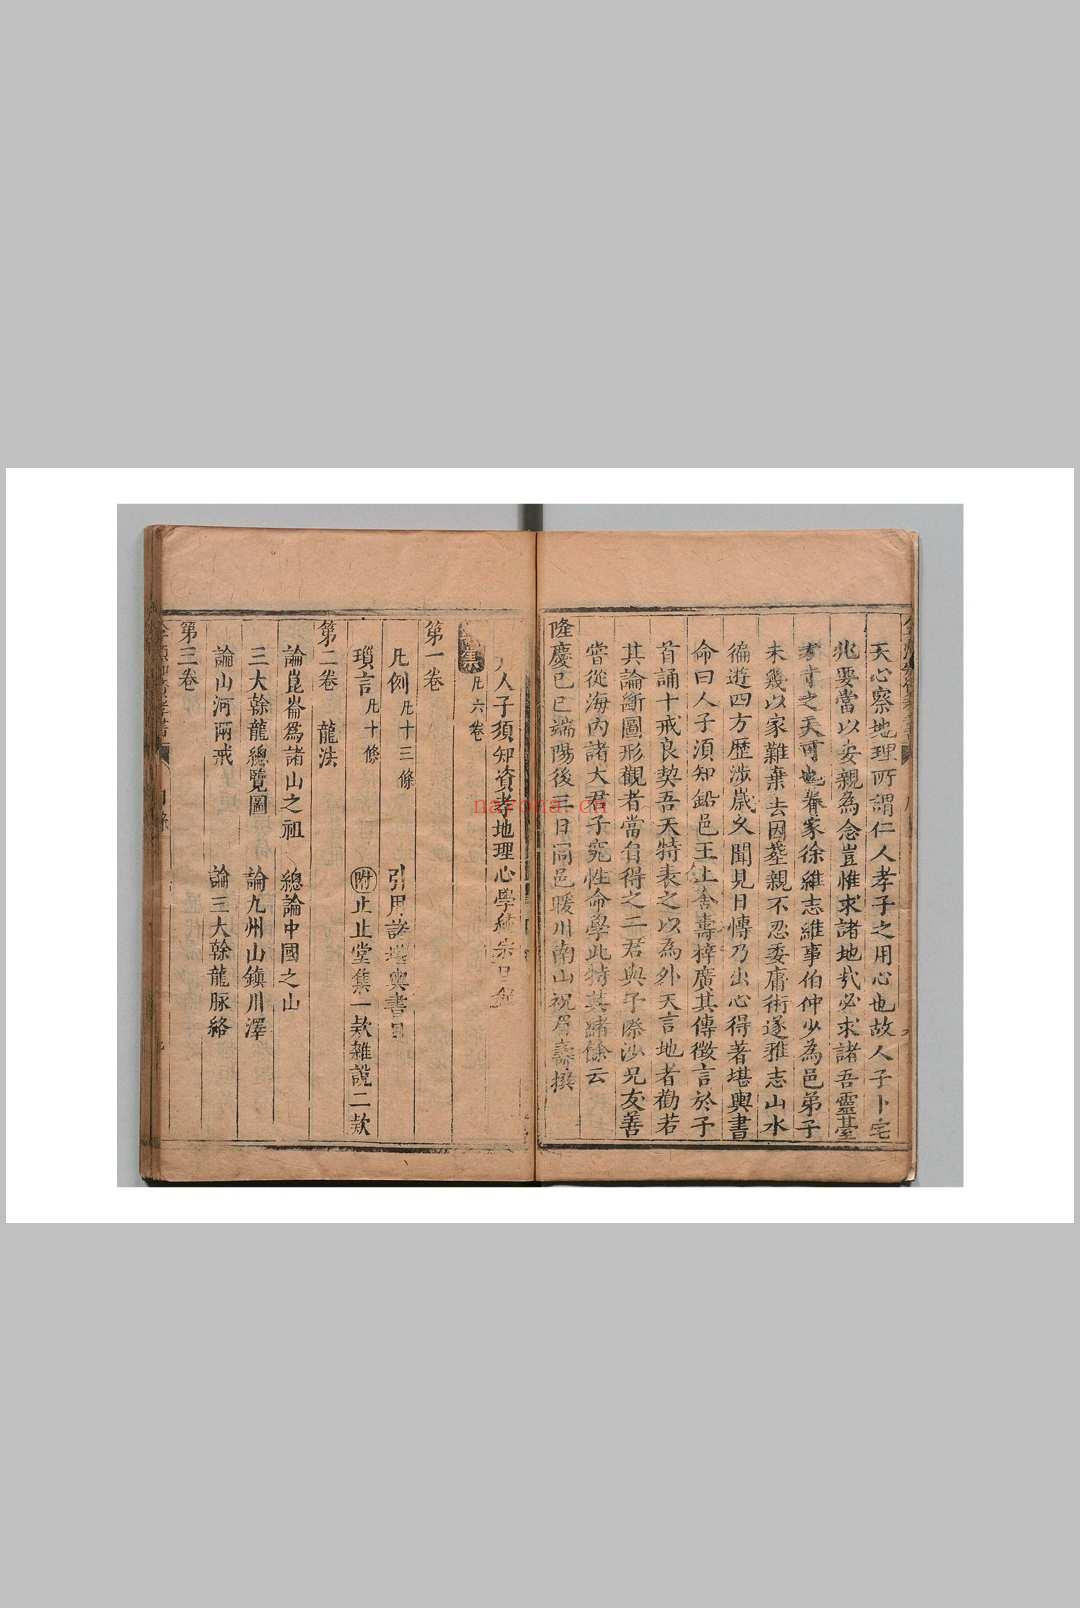 天心察地理所謂仁人孝子之用心也故人子卜宅
兆要當以安親為念豈惟求諸地哉必求諸吾靈䑓
之天可也眷家徐維志維事伯仲少為邑弟子
未幾以家難棄去因塟親不忍委庸術遂雅志山水
徧遊四方歷涉歲久聞見日慱乃出心得著堪輿書
命曰人子須知鉛邑王止菴壽梓廣其傳徵言於予
首誦十戒良契吾天特表之以為外天言地者勸若
其論斷圖形觀者當自得之二君與予際沙兄友善
甞從海內諸大君子究性命學此特其緒餘云
隆慶己巳端陽後三日同邑暖川南山祝眉壽撰
人子須知資孝地理心學統宗目錄
集 凡六卷
第一卷
凡例 凡十三條 引用諸堪輿書目
瑣言 凡十條 附 止止堂集一款雜說二款
第二卷 龍法
論崑崙為諸山之祖 總論中國之山
三大榦龍總覽圖 論九州山鎮川澤
論山河兩戒 論三大榦龍脉絡
第三卷
navona.cn